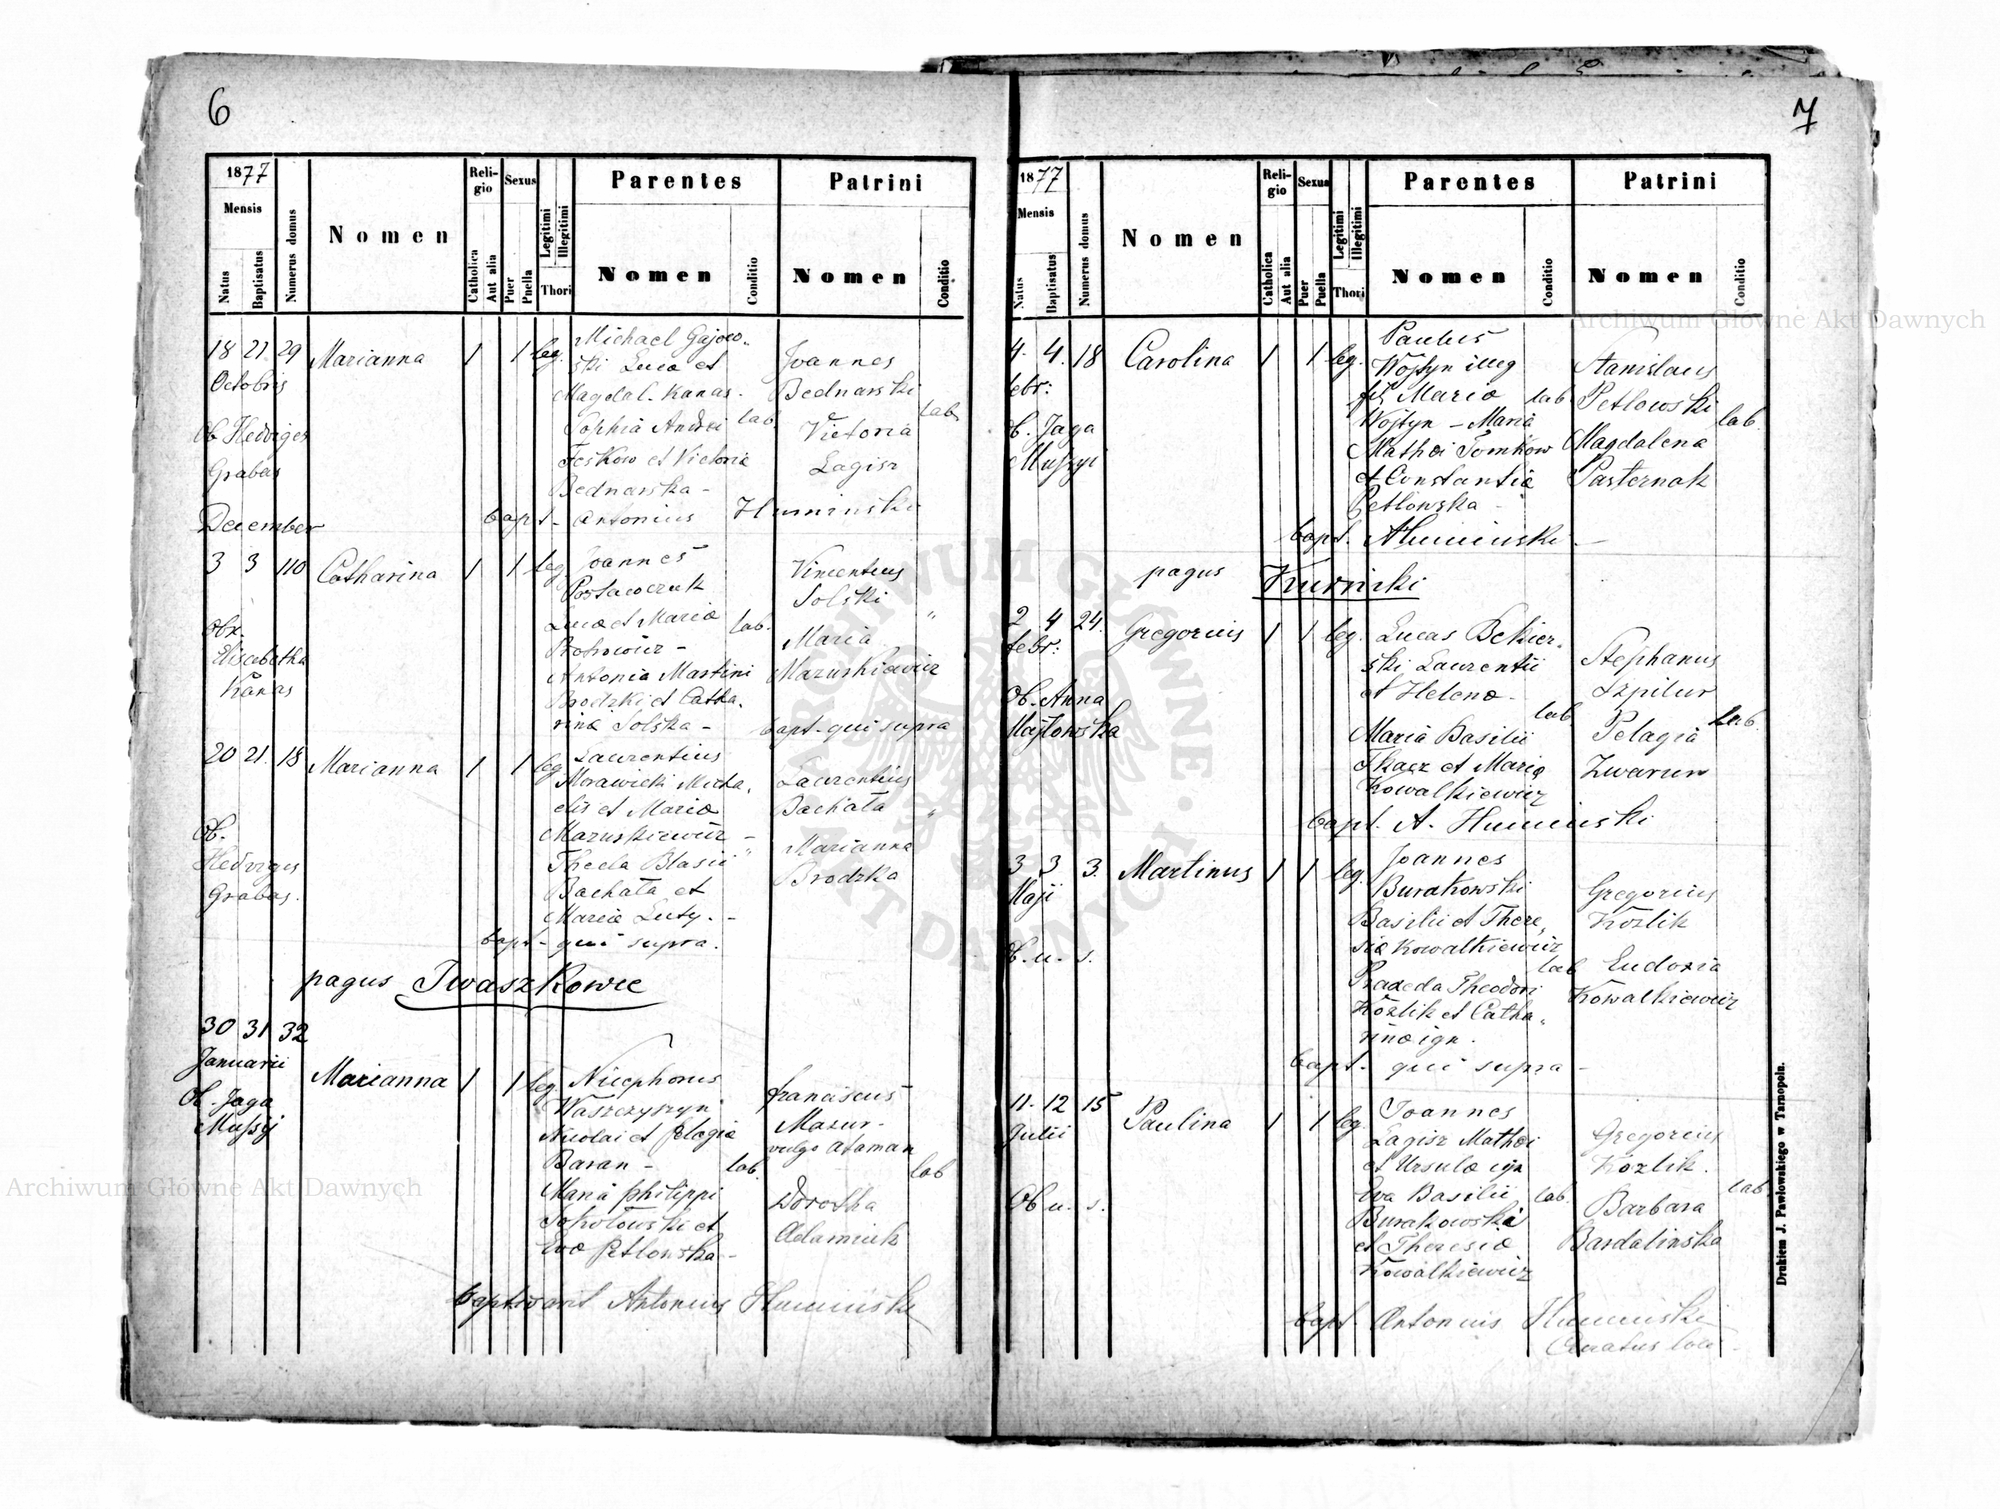 6
1877
Mensis
Natus
Baptisatus
Numerus domus
Nomen
Religio
Catholica
Aut alia
Sexus
Puer
Puella
Legitimi
Illegitimi
Thori
Parentes
Nomen
Conditio
Patrini
Nomen
Conditio
18 21 29 Marianna 1 1 leg.
Octobris
Ob Hedviges
Grabas
Michael Gajow-
ski Lucæ et
Magdal. Kanas.
Sophia Andrei lab.
Feskow et Victoria
Bednarska -
Joannes
Bednarski
Victoria
Lagisz
lab.
bapt - Antonius Huminski
December
3 3 110 Catharina 1 1 leg.
Obr.
Elisabetha
Kanas
Joannes
Lucæ et Mariæ lab.
Antonia Martini
Brodzki et Catha-
rinæ Solska -
Vincentius
Solski "
Maria
Mazurkiewicz
bapt - qui supra
20 21 18 Marianna 1 1 leg
Ob.
Hedviges
Grabas.
Laurentius
Morawicki Micha-
elis et Mariæ
Mazurkiewicz -
Thecla Blasii "
Bachata et
Mariæ Luty. -
Laurentius
Bachata "
Marianna
Brodzka
bapt - qui supra.
pagus Iwaszkowce
30 31 32
Januarii
Marianna 1 1 leg.
Ob. Jaga
Mussij
Nicephorus
Waszczyszyn
Nicolai et Pelagiæ
Baran - lab.
Maria Philippi
Sokolowski et
Evæ Petlowska -
Franciscus
Mazur -
vulgo Ataman
lab
Dorothea
Adamiuk
baptisavit Antonius Huminski
7
1877
Mensis
Natus
Baptisatus
Numerus domus
Nomen
Religio
Catholica
Aut alia
Sexus
Puer
Puella
Legitimi
Illegitimi
Thori
Parentes
Nomen
Conditio
Patrini
Nomen
Conditio
4. 4. 18 Carolina 1 1 leg.
febr:
Ob. Jaga
Mussyi
Paulus
Wojtyn illeg
fil. Mariæ lab
Wojtyn - Maria
Mathei Tomkow
et Constantiæ
Petlowska -
Stanislaus
Petlowski
lab.
Magdalena
Pasternak
bapt. A Huminski -
pagus Kurniki
2 4 24. Gregorius 1 1 leg.
febr:
Ob. Anna
Majkowska
Lucas Bekier-
ski Laurentii
et Helenæ -
lab
Maria Basilii
Tkacz et Mariæ
Kowalkiewicz
Stephanus
Szpilur
Pelagia lab.
Zwarun
bapt. A. Huminski
3 3 3. Martinus 1 1 leg.
Maji
Ob. u. s.
Joannes
Burakowski
Basilii et There-
siæ Kowalkiewicz
lab
Theodori
Kozlik et Catha-
rinæ ign.
Gregorius
Kozlik
Eudoxia
Kowalkiewicz
bapt - qui supra -
11. 12 15 Paulina 1 1 leg.
Julii
Ob u. s.
Joannes
Lagisz Mathei
et Ursulæ ign
Eva Basilii lab.
Burakowski
et Theresiæ
Kowalkiewicz
Gregorius
Kozlik.
lab.
Barbara
Bardalinska
bapt. Antonius Huminski
Curatus loci -
Drukiem J. Pawłowskiego w Tarnopolu.
Archiwum Główne Akt Dawnych
Archiwum Główne Akt Dawnych
ARCHIWUM GŁÓWNE · AKT DAWNYCH ·